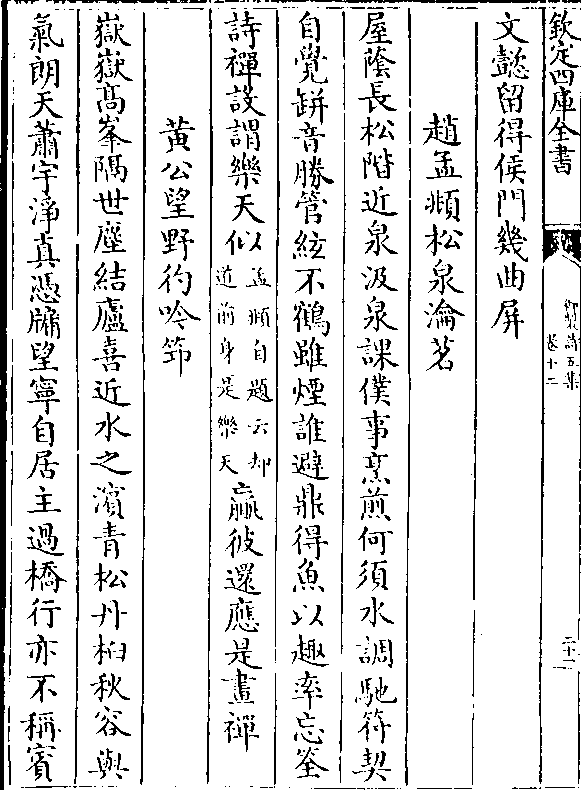 欽定四庫全書
御製詩五集
卷十二
文懿留得侯門幾曲屏
趙孟頫松泉瀹茗
屋蔭長松階近泉汲泉課僕事烹煎何須水調馳符契
自覺缾音勝管絃不鶴雖煙誰避鼎得魚以趣率忘筌
詩禪設謂樂天似
孟頫自題云却
道前身是樂天
贏彼還應是畫禪
黄公望野彴吟笻
嶽嶽髙峯隔世塵結廬喜近水之濱青松丹桕秋容與
氣朗天蕭宇淨真憑牖望寧自居主過橋行亦不稱賓